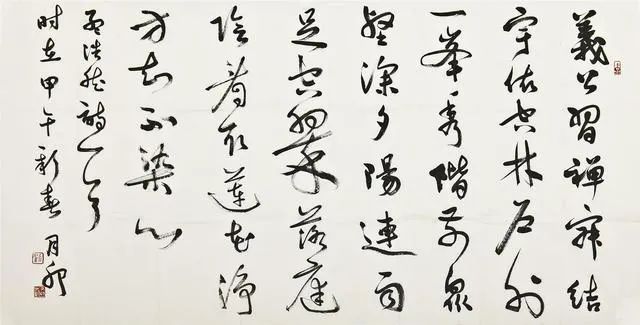 義公習禪寂結
宇依空林户外
一峯秀階前衆
壑深夕陽連雨
足空翠落庭
陰看取蓮花淨
方知不染心
孟浩然詩一首
时在甲午新春